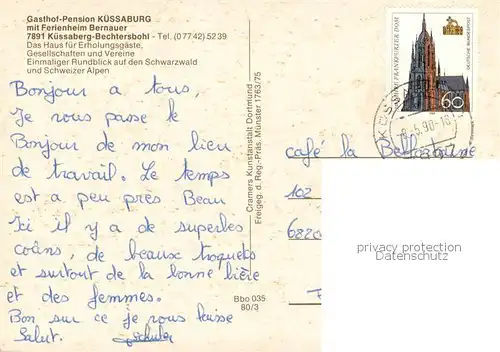 Gasthof-Pension KÜSSABURG
mit Ferienheim Bernauer
7891 Küssaberg-Bechtersbohl - Tel. (0 77 42) 52 39
Das Haus für Erholungsgäste,
Gesellschaften und Vereine
Einmaliger Rundblick auf den Schwarzwald
und Schweizer Alpen
Bonjour a tous,
Je vous passe le
Bonjour de mon lieu
de travail. Le temps
est a peu près Beau
Ici il y a de superbes
coins, de beaux troquets
et surtout de la bonne bière
et des femmes.
Bon sur ce je vous laisse
Salut.
Cramers Kunstanstalt Dortmund
Freigeg. d. Reg.-Präs. Münster 1763/75
Bbo 035
80/3
FRANKFURTER DOM
DEUTSCHE BUNDESPOST
60
café la Belle
102
privacy protection
Datenschutz